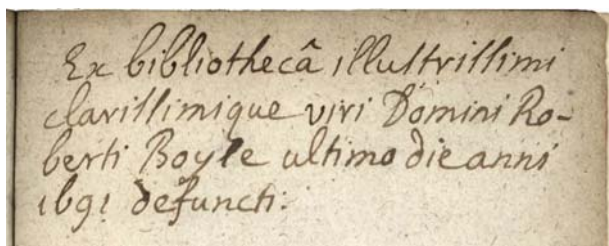 Ex bibliothecâ illustrissimi
clarissimique viri Domini Ro-
berti Boyle ultimo die anni
1691 defuncti.